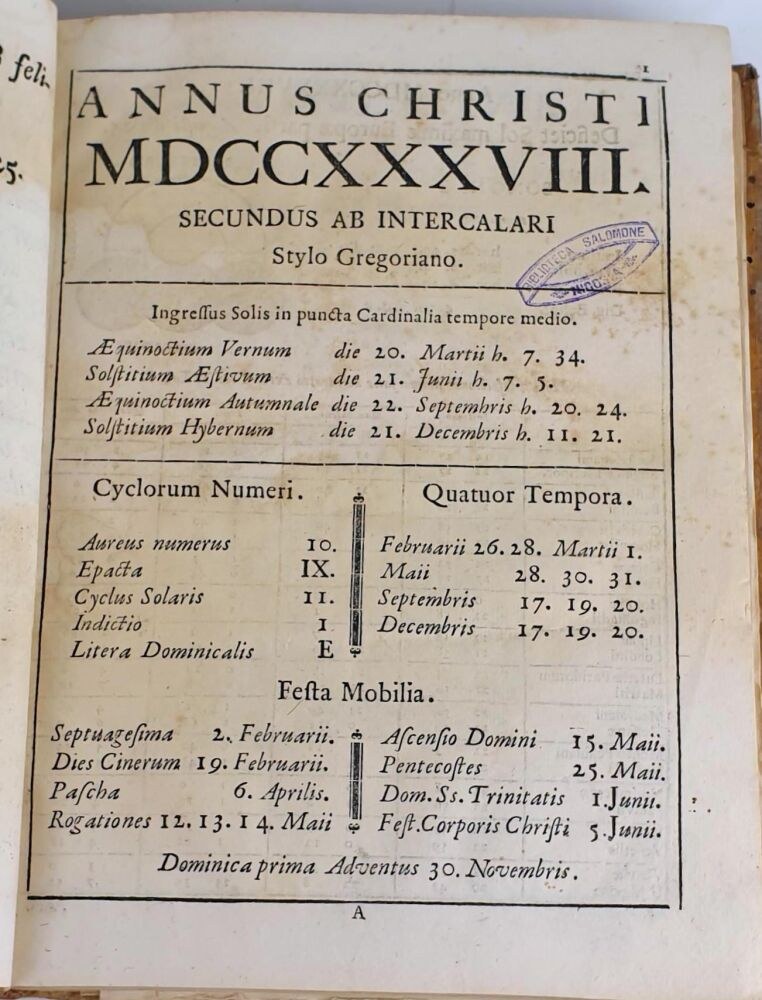 feli-
5.
1
ANNUS CHRISTI
MDCCXXXVIII.
SECUNDUS AB INTERCALARI
Stylo Gregoriano.
BIBLIOTECA SALOMONE
Ingreſſus Solis in puncta Cardinalia tempore medio.
Æquinoctium Vernum die 20. Martii h. 7. 34.
Solſtitium Æſtivum die 21. Junii h. 7. 5.
Æquinoctium Autumnale die 22. Septembris h. 20. 24.
Solſtitium Hybernum die 21. Decembris h. 11. 21.
Cyclorum Numeri.
Aureus numerus 10.
Epacta IX.
Cyclus Solaris 11.
Indictio 1
Litera Dominicalis E
Quatuor Tempora.
Februarii 26. 28. Martii 1.
Maii 28. 30. 31.
Septembris 17. 19. 20.
Decembris 17. 19. 20.
Feſta Mobilia.
Septuageſima 2. Februarii.
Dies Cinerum 19. Februarii.
Paſcha 6. Aprilis.
Rogationes 12. 13. 14. Maii
Aſcenſio Domini 15. Maii.
Pentecoſtes 25. Maii.
Dom. Ss. Trinitatis 1. Junii.
Feſt. Corporis Chriſti 5. Junii.
Dominica prima Adventus 30. Novembris.
A